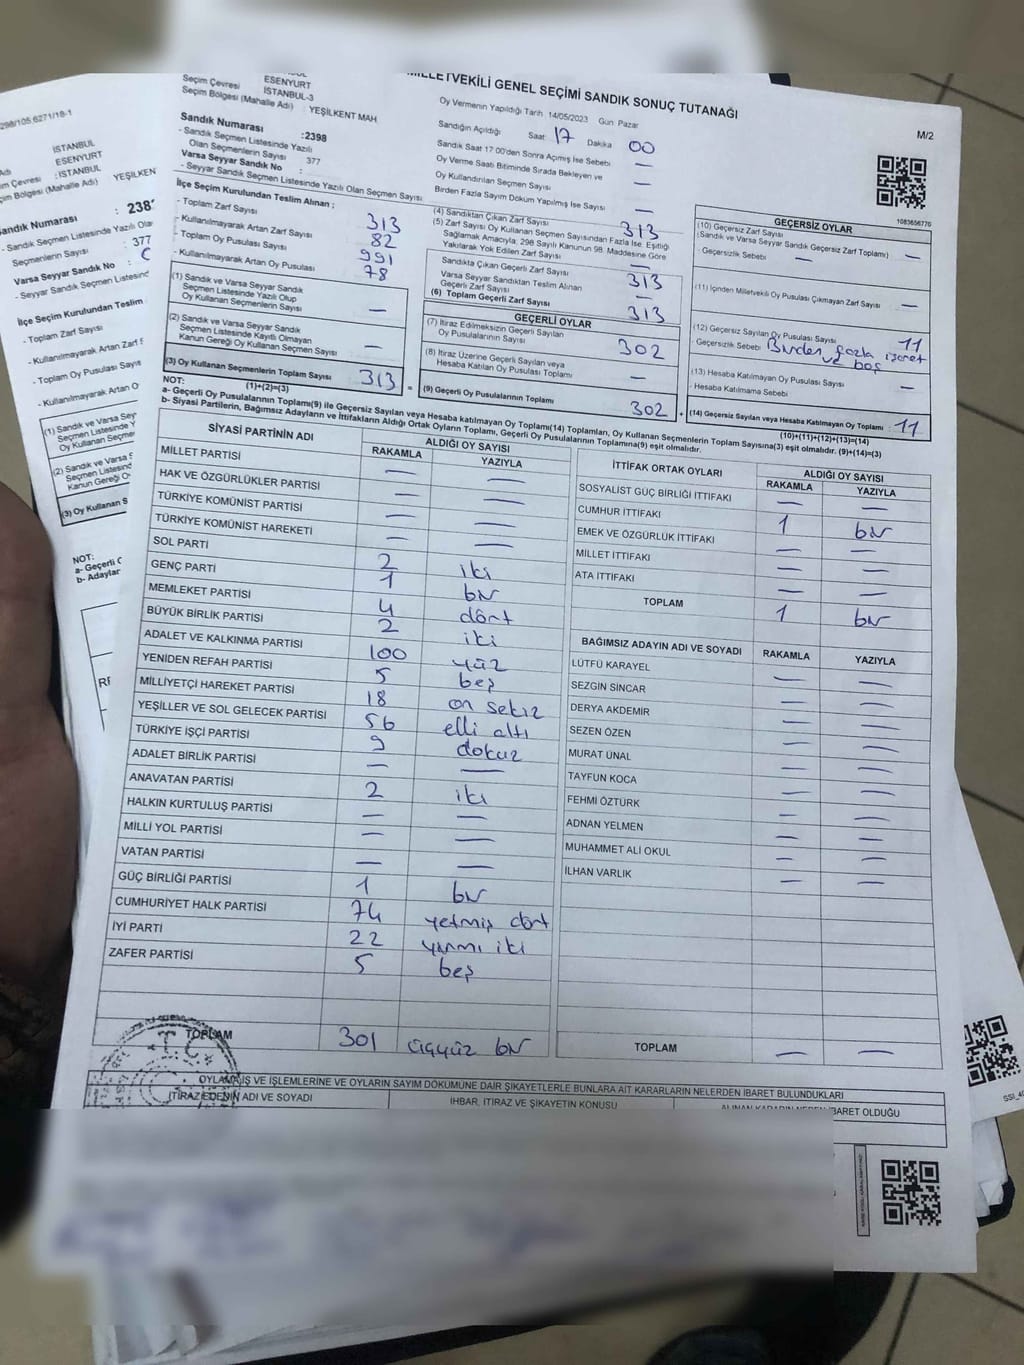 MİLLETVEKİLİ GENEL SEÇİMİ SANDIK SONUÇ TUTANAĞI
M/2
Seçim Çevresi
ESENYURT
İSTANBUL-3
Seçim Bölgesi (Mahalle Adı) : YEŞİLKENT MAH
Oy Vermenin Yapıldığı Tarih 14/05/2023 Gün Pazar
Sandığın Açıldığı Saat 17 Dakika 00
Sandık Numarası :2398
- Sandık Seçmen Listesinde Yazılı
Olan Seçmenlerin Sayısı 377
Varsa Seyyar Sandık No :
- Seyyar Sandık Seçmen Listesinde Yazılı Olan Seçmen Sayısı
Sandık Saat 17 00'den Sonra Açımış İse Sebebi —
Oy Verme Saati Bitiminde Sırada Bekleyen ve
Oy Kullandırılan Seçmen Sayısı —
Birden Fazla Sayım Döküm Yapılmış İse Sayısı —
1083656770
İlçe Seçim Kurulundan Teslim Alınan ;
- Toplam Zarf Sayısı 313
- Kullanılmayarak Artan Zarf Sayısı 82
- Toplam Oy Pusulası Sayısı 991
- Kullanılmayarak Artan Oy Pusulası 78
(1) Sandık ve Varsa Seyyar Sandık
Seçmen Listesinde Yazılı Olup
Oy Kullanan Seçmenlerin Sayısı —
(2) Sandık ve Varsa Seyyar Sandık
Seçmen Listesinde Kayıtlı Olmayan
Kanun Gereği Oy Kullanan Seçmen Sayısı —
(3) Oy Kullanan Seçmenlerin Toplam Sayısı 313
(1)+(2)=(3)
(4) Sandıktan Çıkan Zarf Sayısı 313
(5) Zarf Sayısı Oy Kullanan Seçmen Sayısından Fazla İse, Eşitliği
Sağlamak Amacıyla, 298 Sayılı Kanunun 98. Maddesine Göre
Yakılarak Yok Edilen Zarf Sayısı —
Sandıkta Çıkan Geçerli Zarf Sayısı 313
Varsa Seyyar Sandıktan Teslim Alınan
Geçerli Zarf Sayısı —
(6) Toplam Geçerli Zarf Sayısı 313
GEÇERLİ OYLAR
(7) İtiraz Edilmeksizin Geçerli Sayılan
Oy Pusulalarının Sayısı 302
(8) İtiraz Üzerine Geçerli Sayılan veya
Hesaba Katılan Oy Pusulası Toplamı —
(9) Geçerli Oy Pusulalarının Toplamı 302
GEÇERSİZ OYLAR
(10) Geçersiz Zarf Sayısı
(Sandık ve Varsa Seyyar Sandık Geçersiz Zarf Toplamı) —
- Geçersizlik Sebebi —
(11) İçinden Milletvekili Oy Pusulası Çıkmayan Zarf Sayısı —
(12) Geçersiz Sayılan Oy Pusulası Sayısı 11
- Geçersizlik Sebebi Birden fazla işaret
ve boş
(13) Hesaba Katılmayan Oy Pusulası Sayısı —
- Hesaba Katılmama Sebebi
(14) Geçersiz Sayılan veya Hesaba Katılmayan Oy Toplamı : 11
(10)+(11)+(12)+(13)=(14)
NOT:
a- Geçerli Oy Pusulalarının Toplamı(9) ile Geçersiz Sayılan veya Hesaba katılmayan Oy Toplamı(14) Toplamları, Oy Kullanan Seçmenlerin Toplam Sayısına(3) eşit olmalıdır. (9)+(14)=(3)
b- Siyasi Partilerin, Bağımsız Adayların ve İttifakların Aldığı Ortak Oyların Toplamı, Geçerli Oy Pusulalarının Toplamına(9) eşit olmalıdır.
SİYASİ PARTİNİN ADI
ALDIĞI OY SAYISI
RAKAMLA YAZIYLA
MİLLET PARTİSİ — —
HAK VE ÖZGÜRLÜKLER PARTİSİ — —
TÜRKİYE KOMÜNİST PARTİSİ — —
TÜRKİYE KOMÜNİST HAREKETİ — —
SOL PARTİ 2 iki
GENÇ PARTİ 1 bir
MEMLEKET PARTİSİ 4 dört
BÜYÜK BİRLİK PARTİSİ 2 iki
ADALET VE KALKINMA PARTİSİ 100 yüz
YENİDEN REFAH PARTİSİ 5 beş
MİLLİYETÇİ HAREKET PARTİSİ 18 on sekiz
YEŞİLLER VE SOL GELECEK PARTİSİ 56 elli altı
TÜRKİYE İŞÇİ PARTİSİ 9 dokuz
ADALET BİRLİK PARTİSİ — —
ANAVATAN PARTİSİ 2 iki
HALKIN KURTULUŞ PARTİSİ — —
MİLLİ YOL PARTİSİ — —
VATAN PARTİSİ — —
GÜÇ BİRLİĞİ PARTİSİ 1 bir
CUMHURİYET HALK PARTİSİ 74 yetmiş dört
İYİ PARTİ 22 yirmi iki
ZAFER PARTİSİ 5 beş
TOPLAM 301 üçyüz bir
İTTİFAK ORTAK OYLARI
ALDIĞI OY SAYISI
RAKAMLA YAZIYLA
SOSYALİST GÜÇ BİRLİĞİ İTTİFAKI — —
CUMHUR İTTİFAKI 1 bir
EMEK VE ÖZGÜRLÜK İTTİFAKI — —
MİLLET İTTİFAKI — —
ATA İTTİFAKI — —
TOPLAM 1 bir
BAĞIMSIZ ADAYIN ADI VE SOYADI RAKAMLA YAZIYLA
LÜTFÜ KARAYEL — —
SEZGİN SİNCAR — —
DERYA AKDEMİR — —
SEZEN ÖZEN — —
MURAT ÜNAL — —
TAYFUN KOCA — —
FEHMİ ÖZTÜRK — —
ADNAN YELMEN — —
MUHAMMET ALİ OKUL — —
İLHAN VARLIK — —
TOPLAM — —
T.C.
İTİRAZ EDENİN ADI VE SOYADI
İHBAR, İTİRAZ VE ŞİKAYETİN KONUSU
298/105 6271/18-1
İSTANBUL
ESENYURT
:İSTANBUL
YEŞİLKEN
377